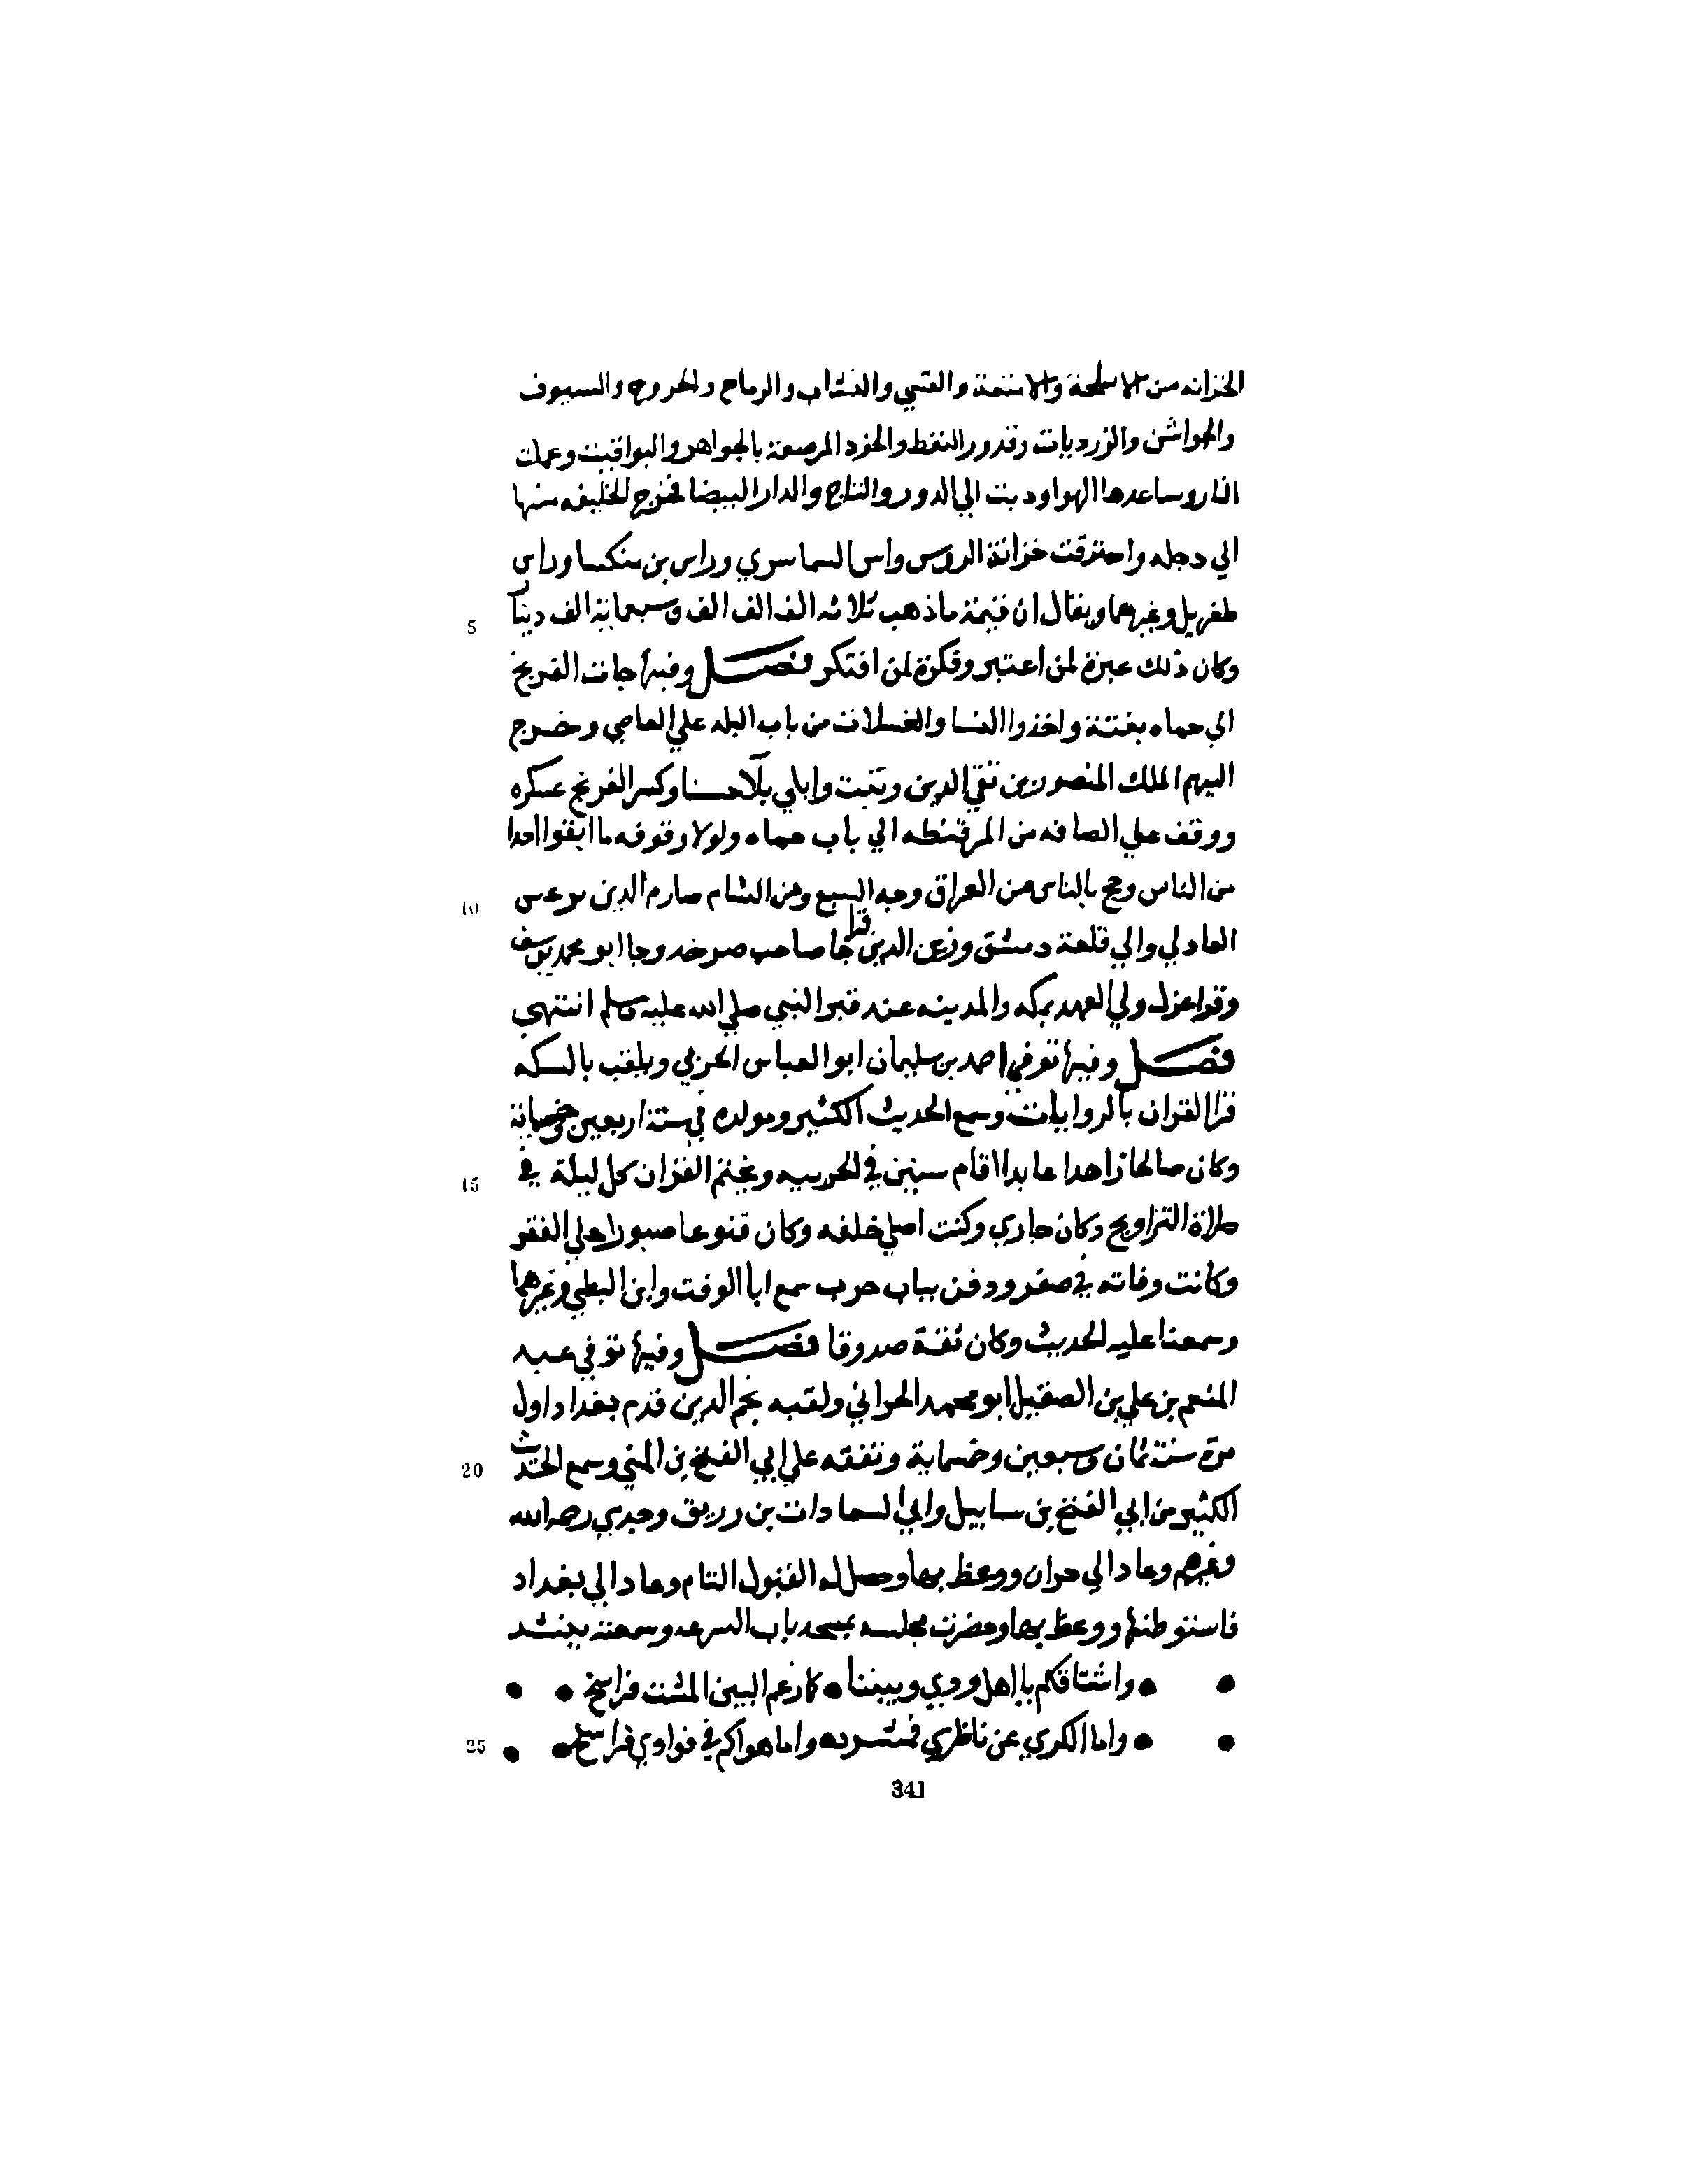 الخزانه من الاسلحة والامتعة والقسي والنشاب والرماح والجروح والسيوف
والجواشن والزرديات وقدور النفط والخود المرصعة بالجواهر واليواقيت وعملت
النار وساعدها الهوا ودبت الي الدور والتاج والدار البيضا فخرج الخليفه منها
الي دجله واحترقت خزانة الروس راس البساسري وراس بن منكسا وراس
طغريل وغيرهما ويقال ان قيمة ماذهب ثلاثه الف الف الف وسبعماية الف دينار
5
وكان ذلك عبرة لمن اعتبر وفكرة لمن افتكر فصل وفيها جات الفرنج
الي حماه بغتة واخذوا النسا والغسلات من باب البلد علي العاصي وخرج
اليهم الملك المنصور بن تقي الدين وتبت وابلي بلاحسنا وكسر الفرنج عسكره
ووقف علي الساقه من الرقيطه الي باب حماه ولولا وقوفه ما ابقوا احدا
من الناس وحج بالناس من العراق وجه السبع ومن الشام صارم الدين
10
العادلي والي قلعة دمشق وزين الدين قراجا صاحب صرخد وجا ابو محمد يوسف
وقرا عزل ولي العهد بمكه والمدينه عند قبر النبي صلي الله عليه وسلم انتهى
فصل وفيها توفي احمد بن سليمان ابو العباس الحربي ويلقب بالسكه
قرا القران بالروايات وسمع الحديث الكثير ومولده في ستة اربعين وخمسمائة
وكان صالحا زاهدا عابدا اقام سنين في الحربيه ويختم القران كل ليلة في
15
صلاة التراويح وكان جاري وكنت اصلي خلفه وكان قنوعا صبورا علي الفقر
وكانت وفاته في صفر ودفن بباب حرب سمع ابا الوقت وابن البطي وغيرهما
وسمعنا عليه الحديث وكان ثقة صدوقا فصل وفيها توفي عبد
المنعم بن علي بن الصقيل ابو محمد الحراني ولقبه نجم الدين قدم بغداد اول
مرة سنة ثمان وسبعين وخمساية وتفقه علي ابي الفتح بن المني وسمع الحديث
20
الكثير من ابي الفتح بن شاتيل وابي السعادات بن زريق وجدي رحمه الله
وغيرهم وعاد الي حران ووعظ بها وحصل له القبول التام وعاد الي بغداد
فاستوطنها ووعظ بها وحضرت مجلسه بمسجد باب المسرعه وسمعته ينشد
• • واشتاقكم يا اهل ودي وبيننا • كما زعم البين المشت فراسخ • •
• • واما الكري عن ناظري فمشرد • واما هواكم في فوادي فراسخ • •
25
341